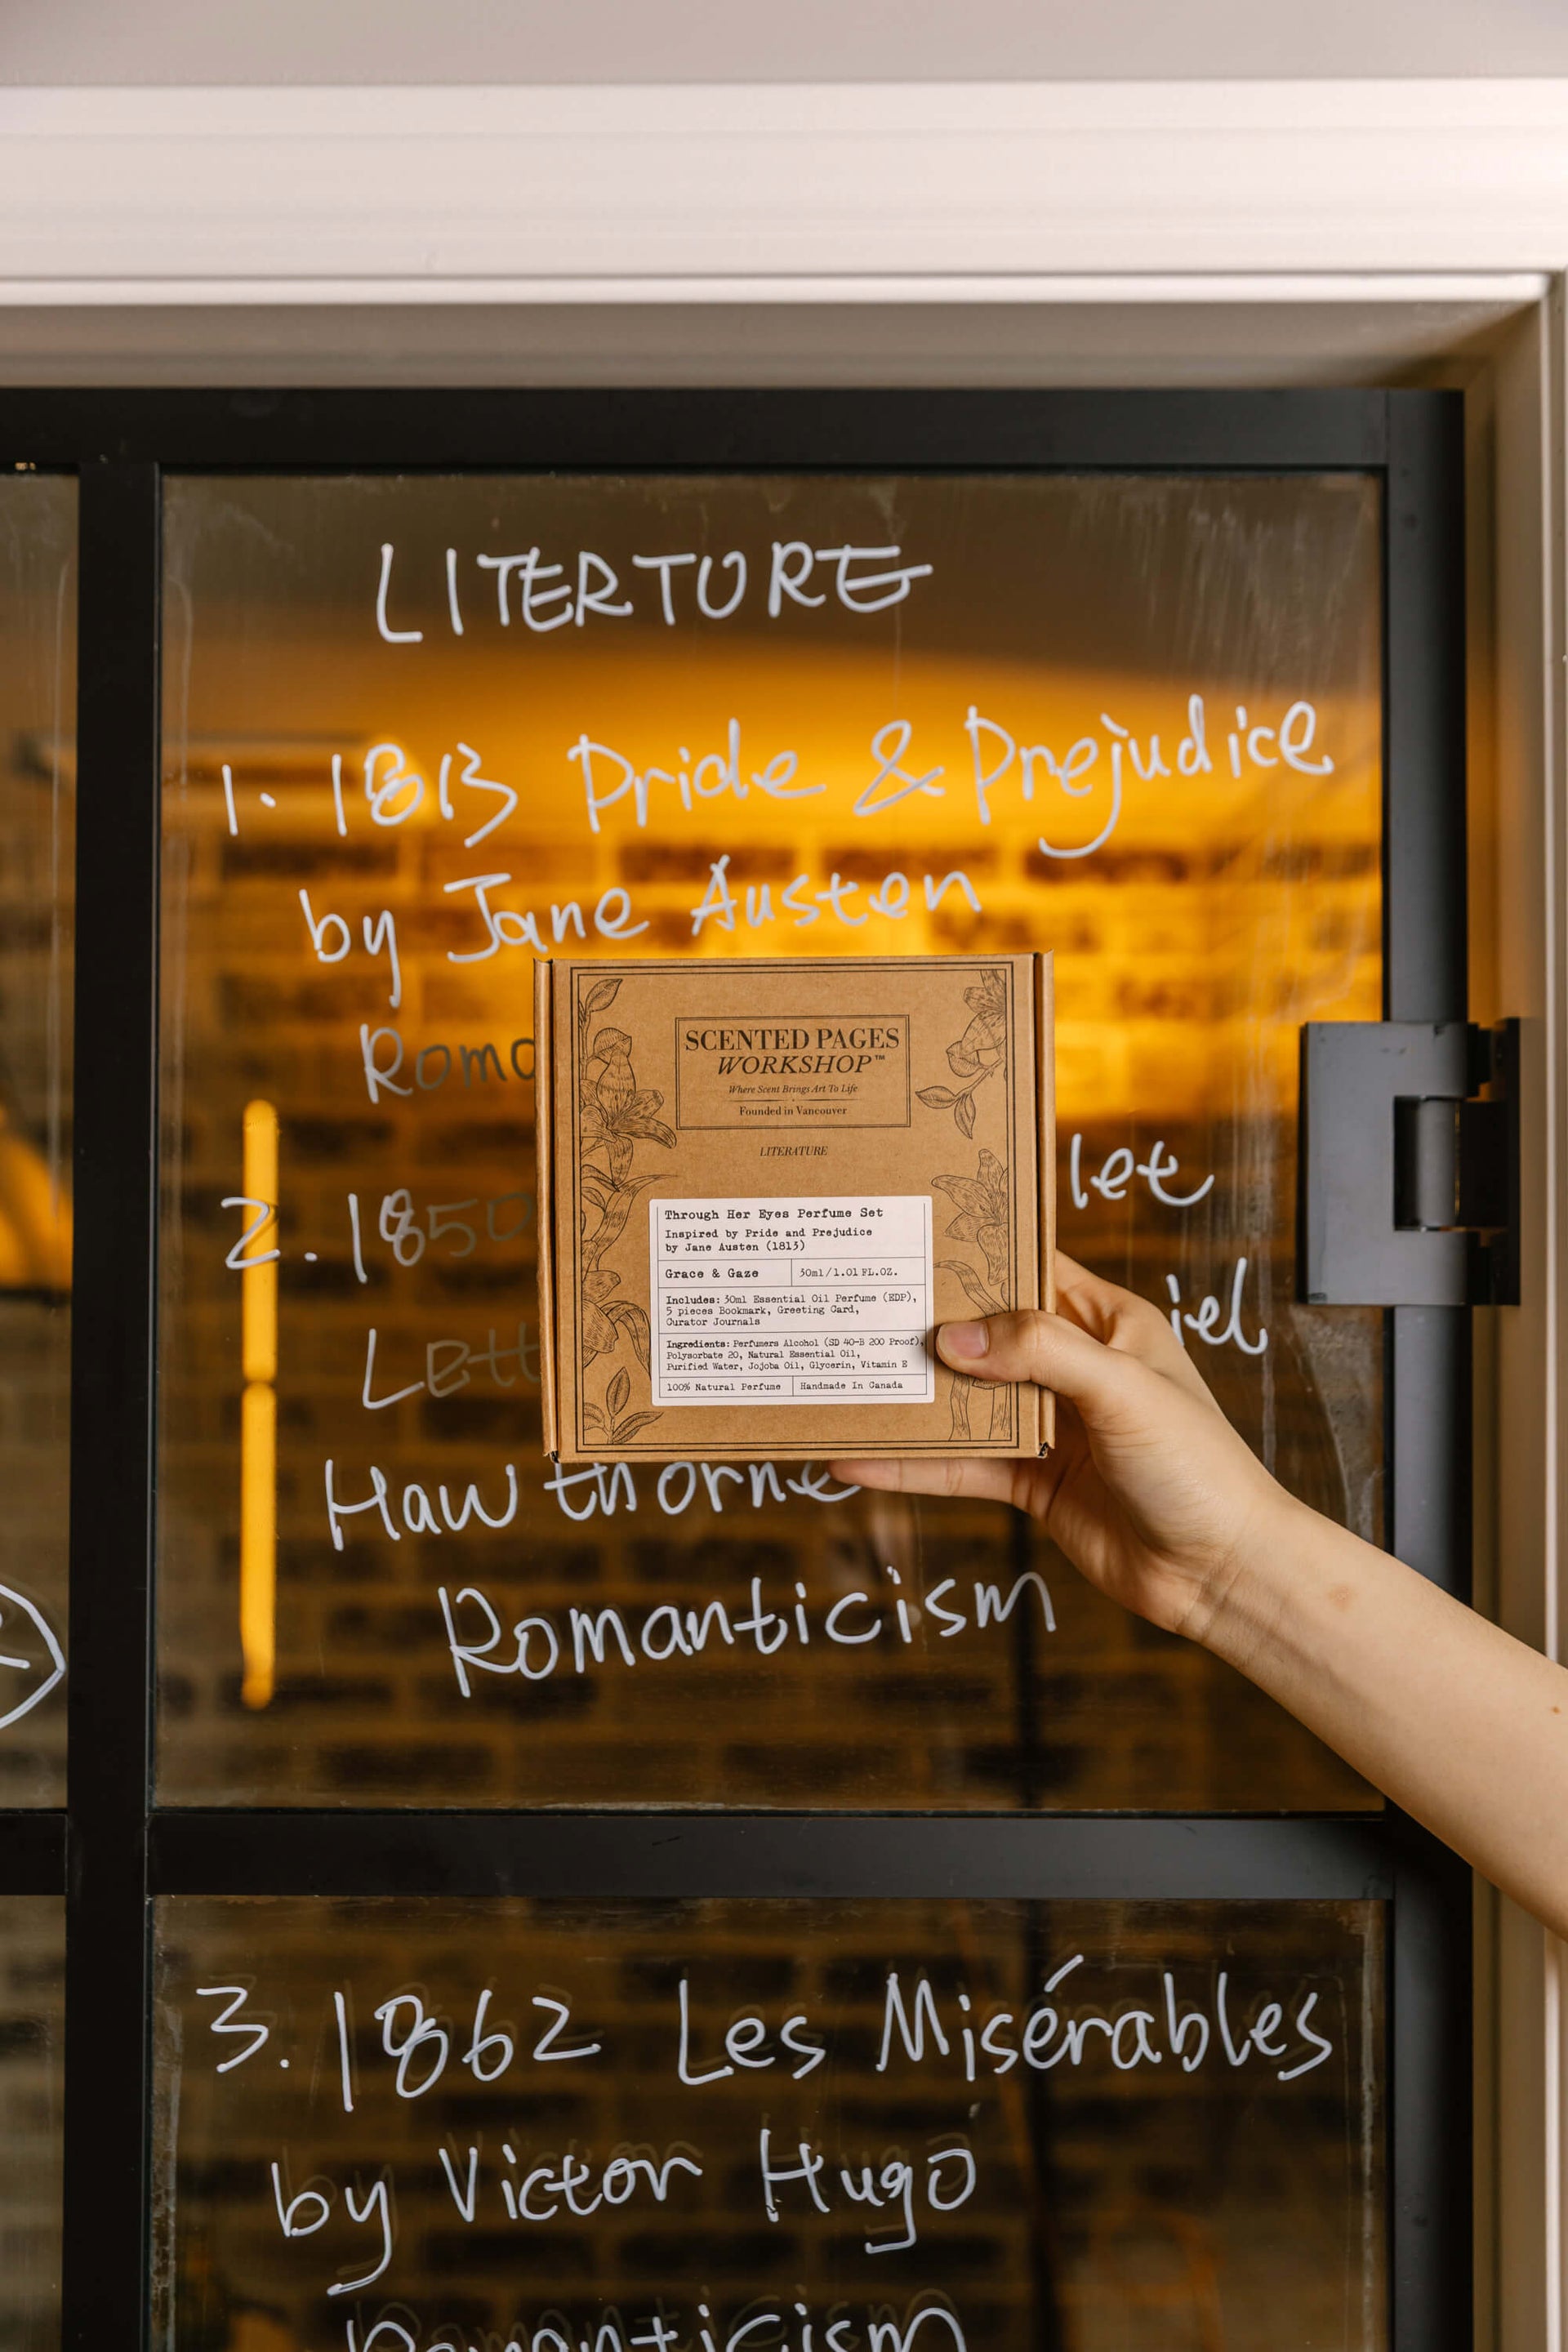 LITERTURE
1. 1813 Pride & Prejudice
by Jane Austen
2. 1850
Hawthorne
Romanticism
3. 1862 Les Misérables
by Victor Hugo
Romanticism
SCENTED PAGES
WORKSHOP™
Where Scent Brings Art To Life
Founded in Vancouver
LITERATURE
Through Her Eyes Perfume Set
Inspired by Pride and Prejudice
by Jane Austen (1813)
Grace & Gaze 30ml/1.01 FL.OZ.
Includes: 30ml Essential Oil Perfume (EDP),
5 pieces Bookmark, Greeting Card,
Curator Journals
Ingredients: Perfumers Alcohol (SD 40-B 200 Proof),
Polysorbate 20, Natural Essential Oil,
Purified Water, Jojoba Oil, Glycerin, Vitamin E
100% Natural Perfume Handmade In Canada